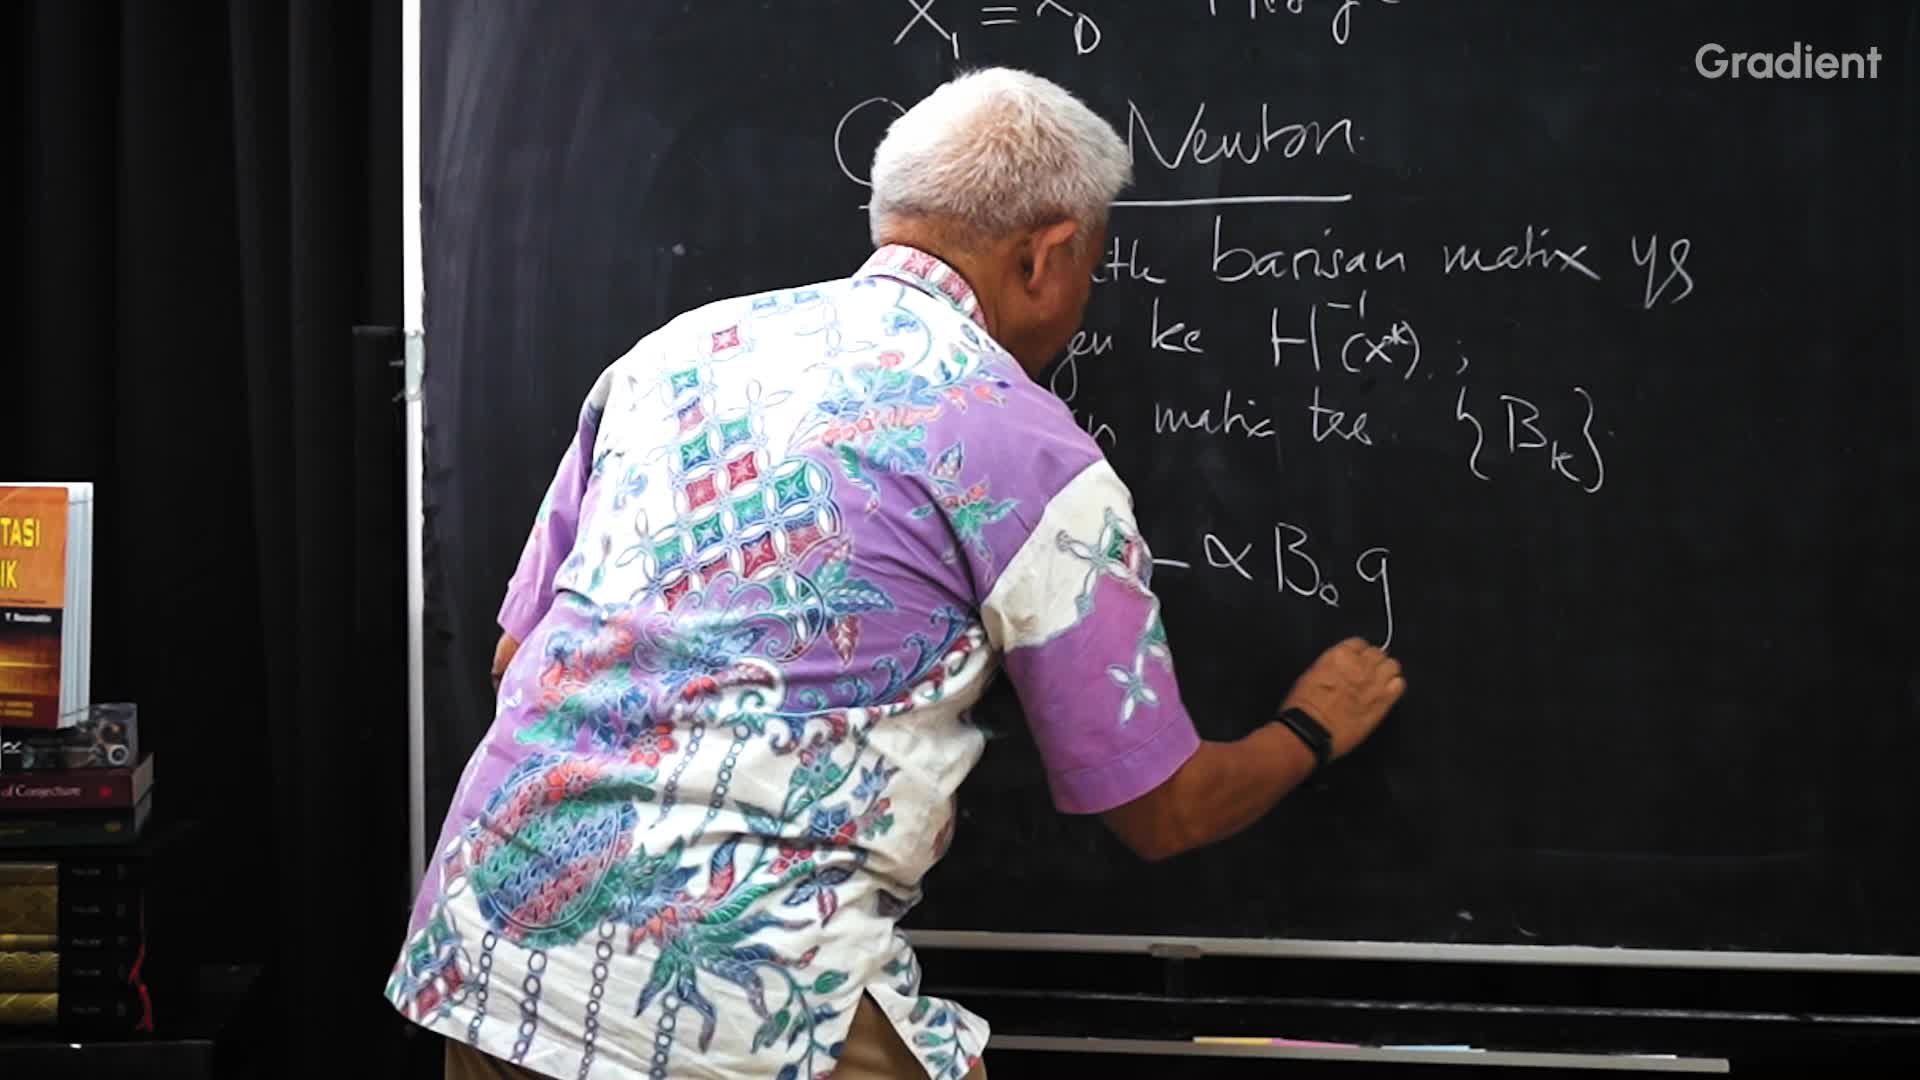 Gradient
X₁ = x₀
Newton.
barisan matrix yg
ke H⁻¹(x*) ;
matrix tsb. {Bₖ}.
- α B₀ g
TASI
IK
of Conjecture